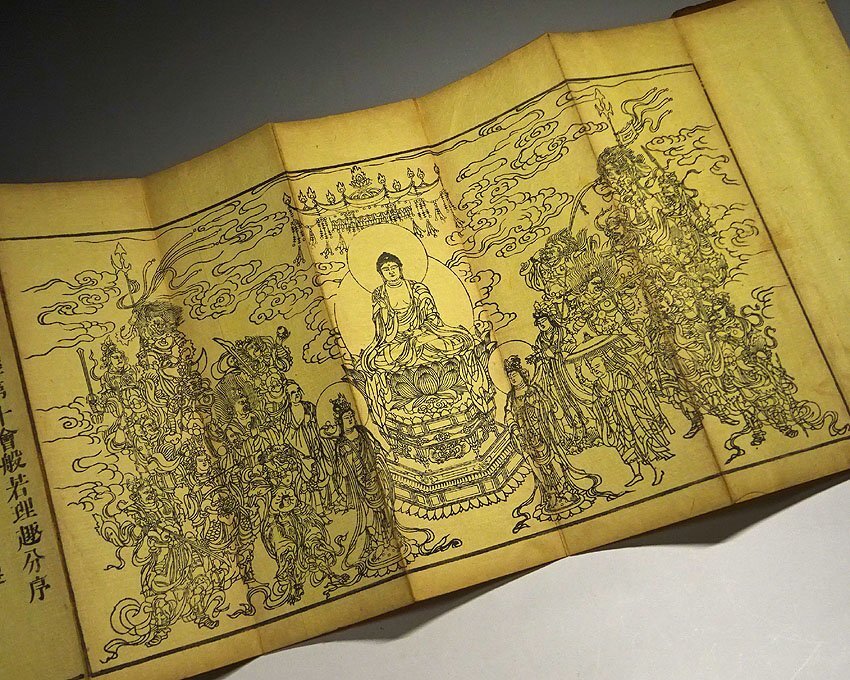 第十會般若理趣分序